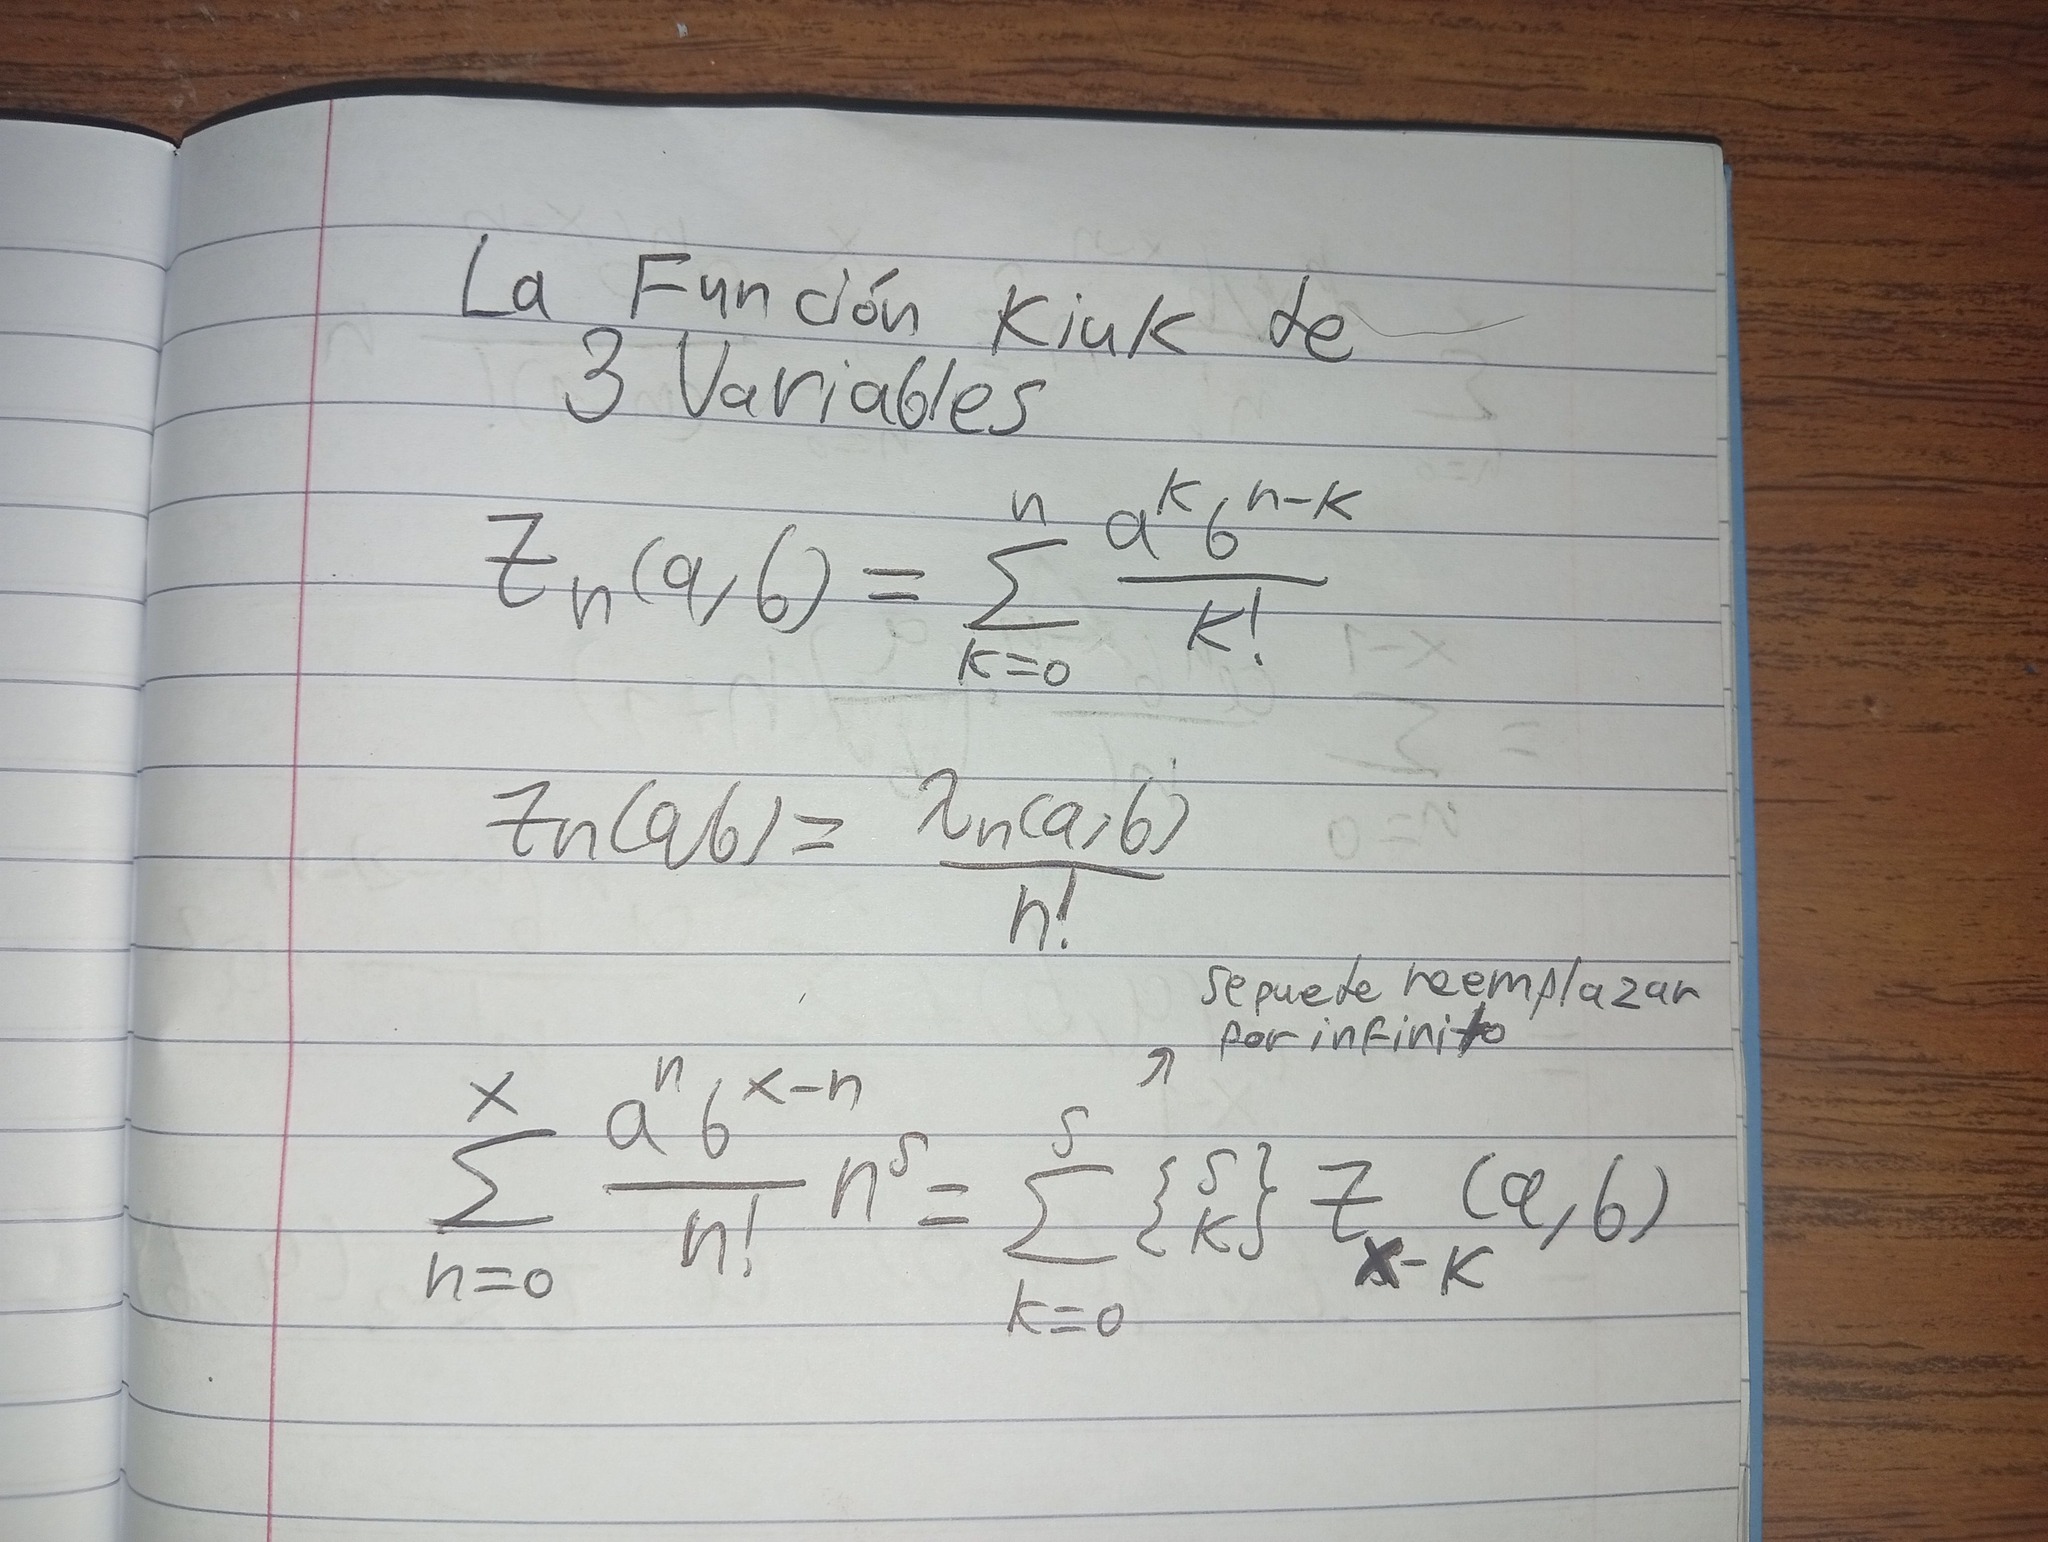 La Función Kiuk de
3 Variables
Z_n(a,b) = \sum_{k=0}^{n} \frac{a^k b^{n-k}}{k!}
Z_n(a,b) = \frac{λ_n(a,b)}{n!}
se puede reemplazar
por infinito
↗
\sum_{n=0}^{x} \frac{a^n b^{x-n}}{n!} n^s = \sum_{k=0}^{s} {s \brace k} Z_{x-k}(a,b)